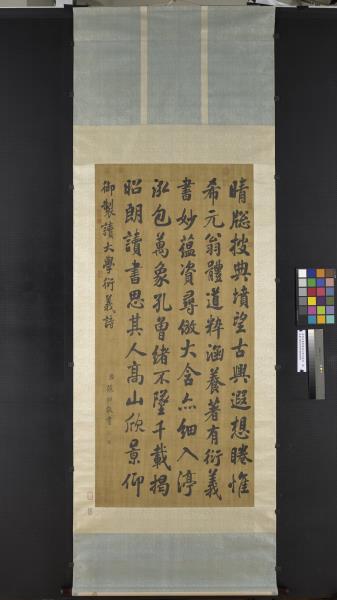 晴牕披典墳望古興遐想睠惟
希元翁體道粹涵養著有衍義
書妙蘊資尋倣大含亦細入渟
泓包萬象孔曾緒不墜千載揭
昭朗讀書思其人高山欣景仰
御製讀大學衍義詩
臣張照敬書